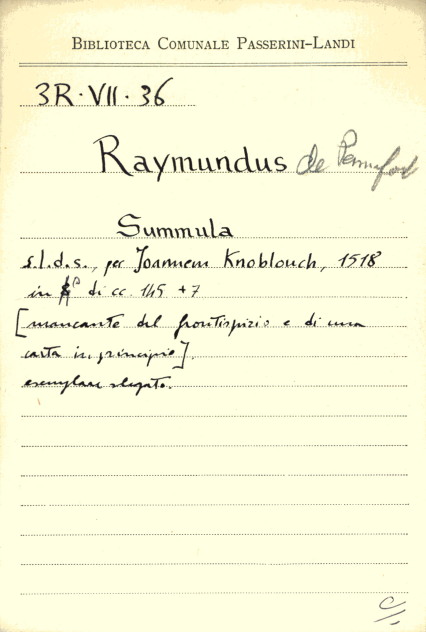 BIBLIOTECA COMUNALE PASSERINI-LANDI
3R·VII·36
Raymundus de
Summula
s.l.d.s., per Joannem Knoblouch, 1518
in di cc. 145 +7
[mancante del frontispizio e di una
carta in principio].
esemplare slegato.